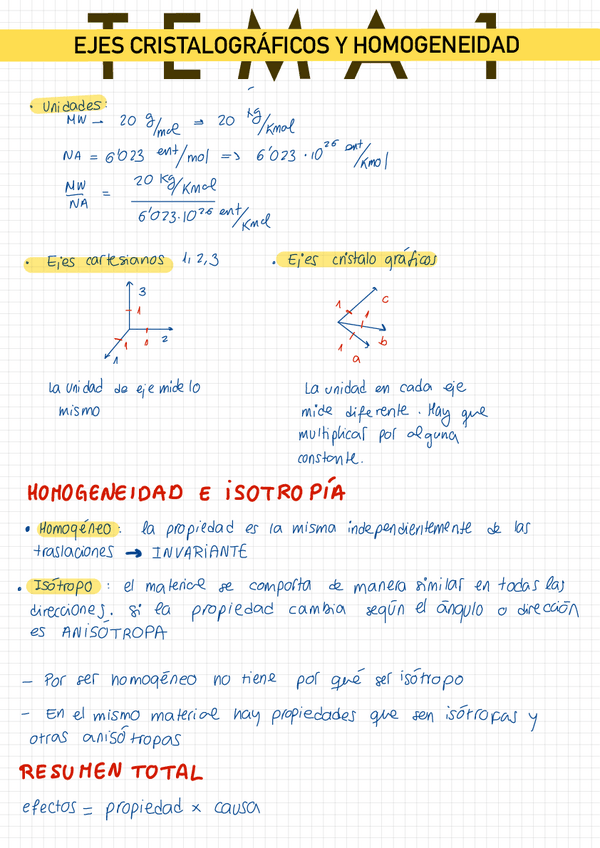 TEMA 1
EJES CRISTALOGRÁFICOS Y HOMOGENEIDAD
• Unidades:
MW → 20 g/mol ⇒ 20 kg/Kmol
NA = 6'023 ent/mol => 6'023 · 10^26 ent/Kmol
MW/NA = 20 Kg/Kmol / 6'023·10^26 ent/Kmol
• Ejes cartesianos 1, 2, 3
3
1
2
1
1
1
La unidad de eje mide lo
mismo
• Ejes cristalográficos
1
c
1
b
1
a
La unidad en cada eje
mide diferente. Hay que
multiplicar por alguna
constante.
HOMOGENEIDAD E ISOTROPÍA
• Homogéneo: la propiedad es la misma independientemente de las
traslaciones → INVARIANTE
• Isótropo: el material se comporta de manera similar en todas las
direcciones. Si la propiedad cambia según el ángulo o dirección
es ANISÓTROPA
- Por ser homogéneo no tiene por qué ser isótropo
- En el mismo material hay propiedades que sen isótropas y
otras anisótropas
RESUMEN TOTAL
efectos = propiedad x causa